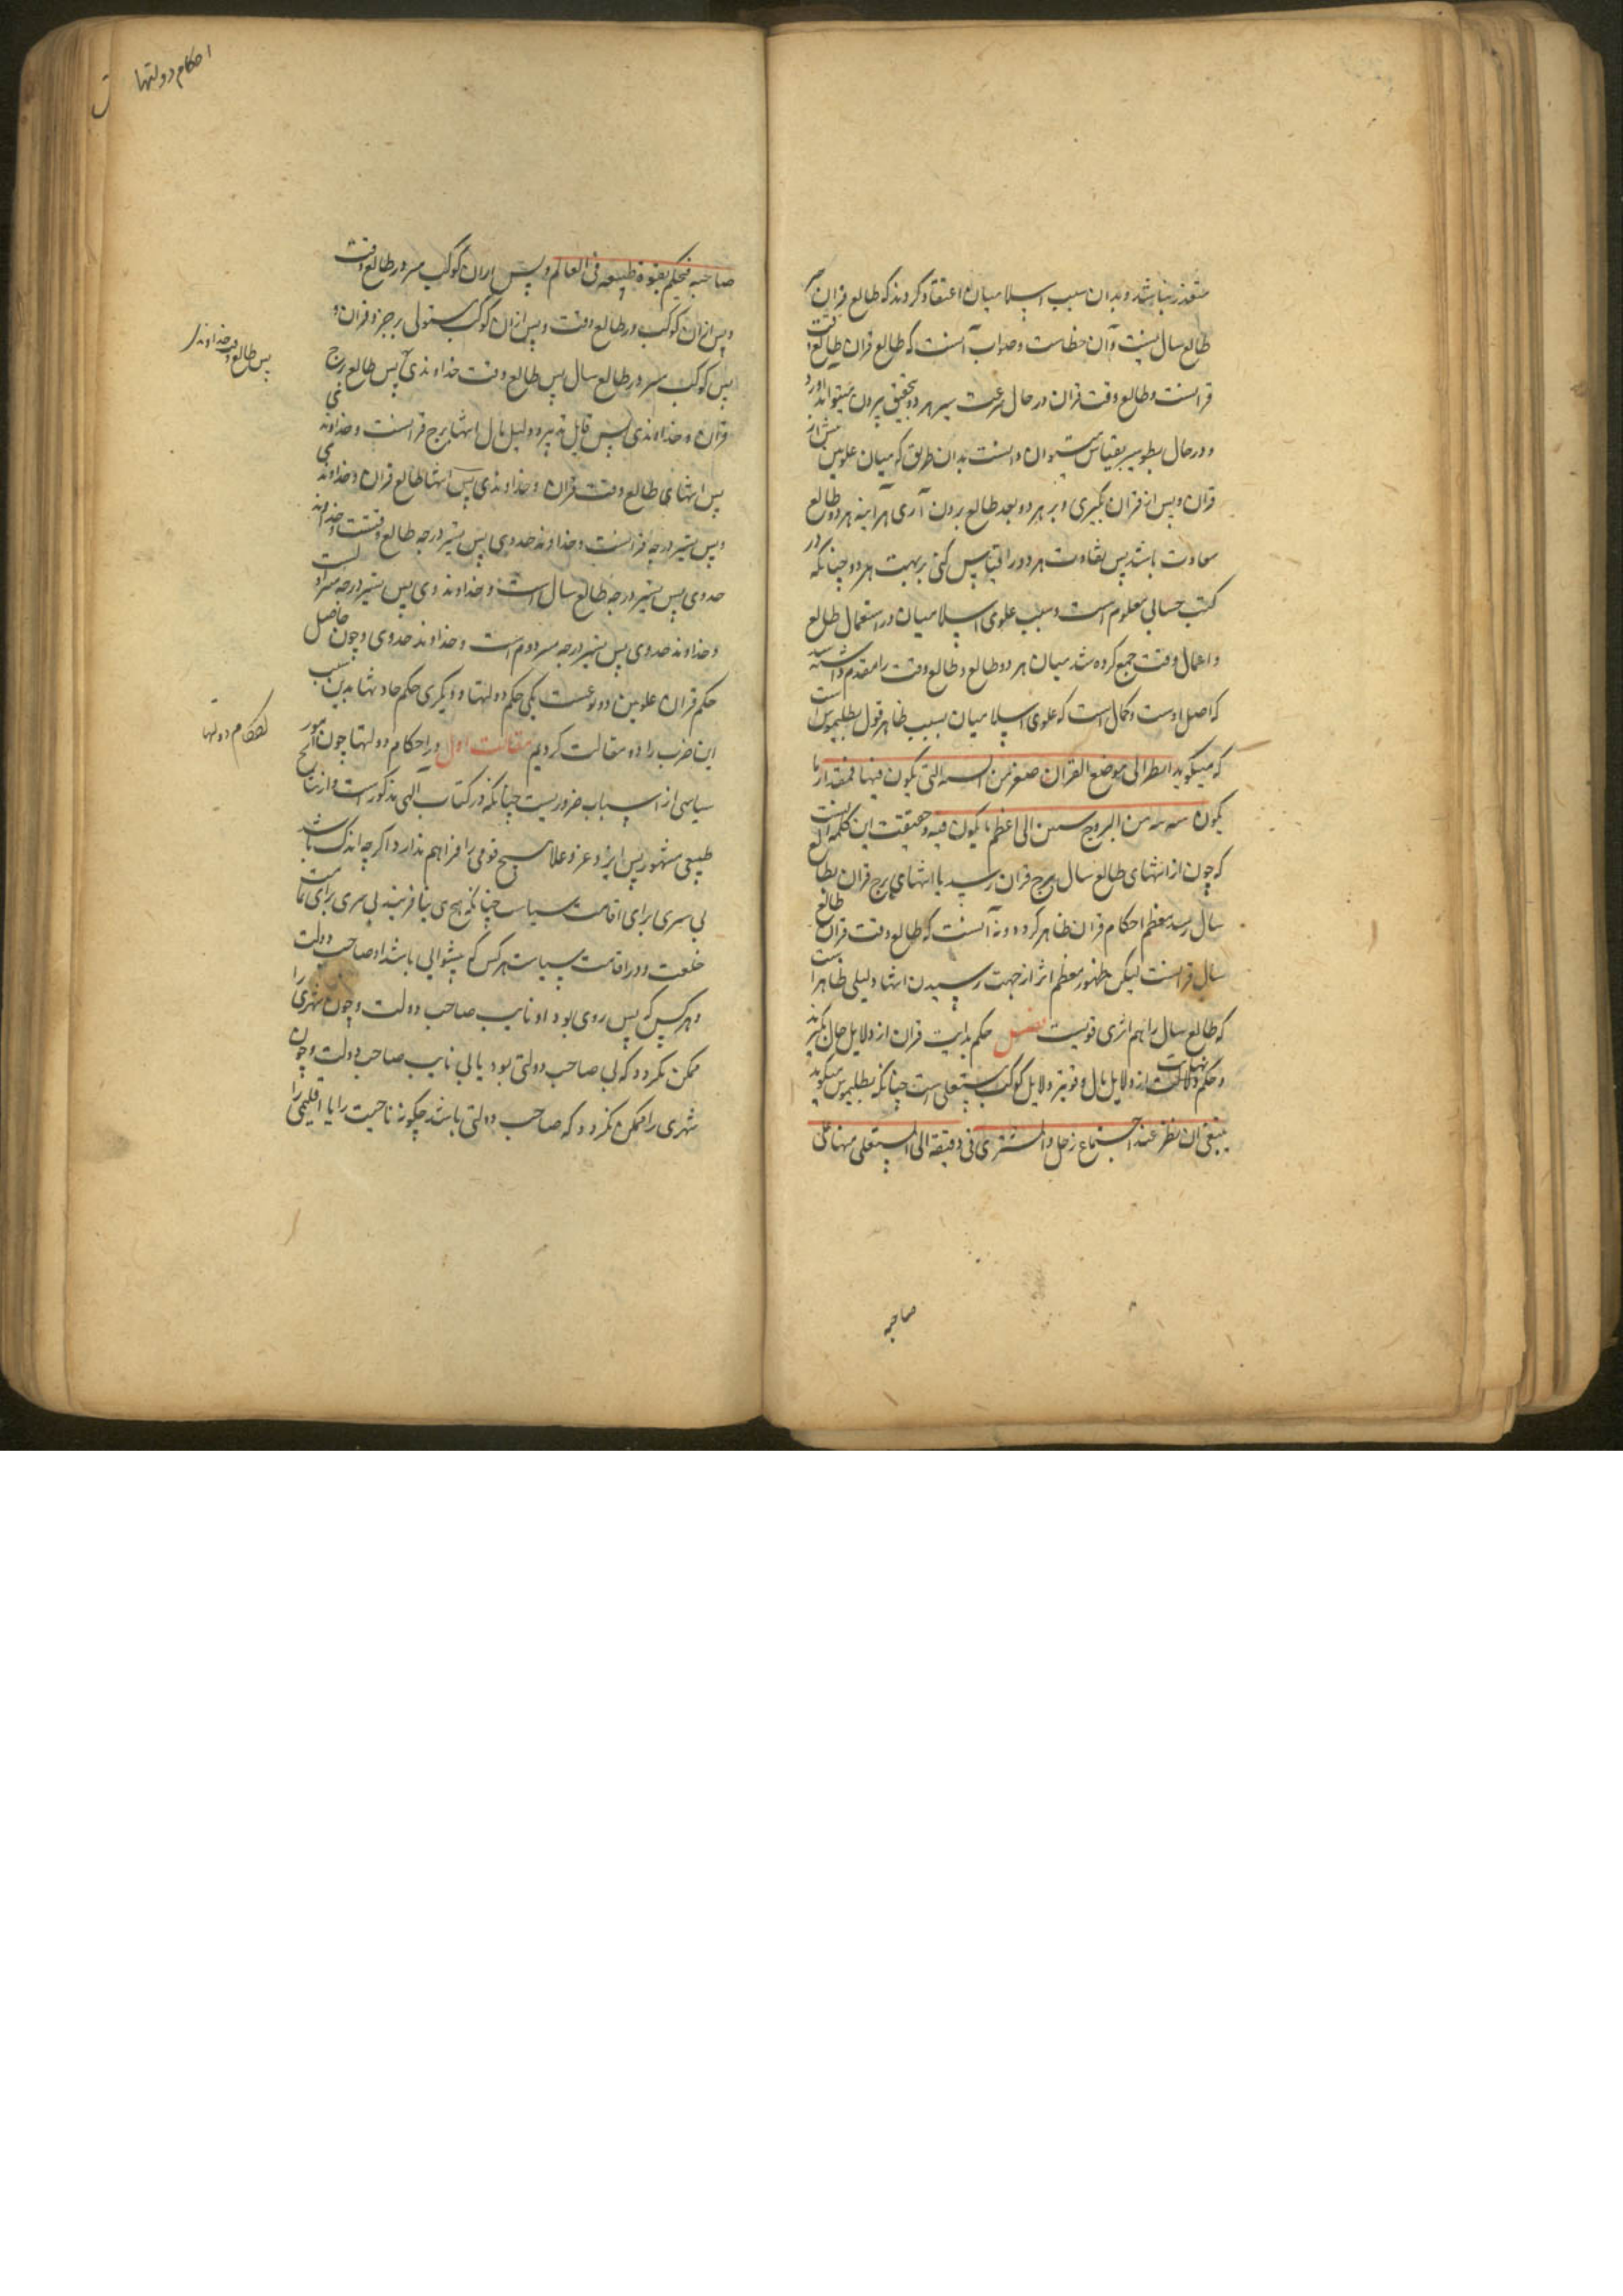 متعذر نباشد و بدان سبب اسلامیان اعتقاد کردند که طالع قران
طالع سال نیست و آن خطاست و صواب آنست که طالع قران طالع وقت
قرانست و طالع وقت قران در حال سرعت سیر هر دو بتحقیق بیرون میتواند آورد
و در حال بطو سیر بقیاس میتوان دانست بدان طریق که میان علویین پیش از
قران و پس از قران بگیری و بر هر دو بعد طالع برون آری هر آینه هر دو طالع
باشد پس تفاوت هر دو را اقتباس کنی بر بهت هر دو چنانکه در
کتب حسابی معلوم است و سبب علوی اسلامیان در استعمال طالع
و اعمال وقت جمع کرده شد میان هر دو طالع و طالع وقت را مقدم داشته شد
که اصل اوست و کمال است که علوی اسلامیان بسبب ظاهر قول بطلیموس است
که میگوید انظر الی موضع القران من السنة التی یکون فیها فمقدار ما
یکون من البروج الی اعظم ما یکون فیه و حقیقت این کلمه آنست
که چون از انتهای طالع سال ببرج قران رسد یا انتهای برج قران بطالع
سال رسد معظم احکام قران ظاهر گردد و نه آنست که طالع وقت قران طالع
سال قرانست لیکن ظهور معظم اثر از جهت رسیدن انتها دلیلی ظاهر است
که طالع سال را هم اثری قویست فصل حکم بدایت قران از دلایل حال گیرند
و حکم نهایت از دلایل مآل و قویتر دلایل کوکب مستعلی است چنانکه بطلیموس میگوید
ینبغی ان ینظر عند اجتماع زحل والمشتری فی دقیقة الی المستعلی منهما علی
صاحبه
احکام دولتها
صاحبه فیحکم بقوة طبیعه فی العالم و پس از آن کوکب در طالع وقت
و پس از آن کوکب در طالع وقت و پس از آن کوکب مستولی بر جزو قران و
پس کوکب در طالع سال پس طالع وقت خداوندی پس طالع برج
پس طالع وقت خداوند
قران و خداوندی پس قابل تدبیر و دلیل مآل انتها برج قرانست و خداوند وی
پس انتهای طالع وقت قران و خداوندی پس انتها طالع قران و خداوند وی
و پس تسیر درجه قرانست و خداوند حدوی پس تسیر درجه طالع وقتست و خداوند
حدوی پس تسیر درجه طالع سال است و خداوند وی پس تسیر درجه
و خداوند حدوی پس تسیر درجه دوم است و خداوند حدوی و چون حاصل
حکم قران علویین دو نوعست یکی حکم دولتها و دیگری حکم حادثها بدین سبب
این ضرب را دو مقالت کردیم مقالت اول در احکام دولتها چون امور
احکام دولتها
سیاسی از اسباب ضروریست چنانکه در کتاب الهی مذکور است و از
طبیعی مشهور پس ایزد عز و علا هیچ قومی را فراهم ندارد اگر چه اندک باشد
بی سری برای اقامت سیاست چنانکه هیچ حی نیافریند بی سری برای تمامت
خلقت و در اقامت سیاست هر کس که پیشوایی باشد او صاحب دولت
و هر کس که پس روی بود او نایب صاحب دولت و چون شهری را
ممکن نگردد که بی صاحب دولتی بود یا بی نایب صاحب دولت و چون
شهری را ممکن نگردد که صاحب دولتی باشد چگونه ناحیت را یا اقلیمی را